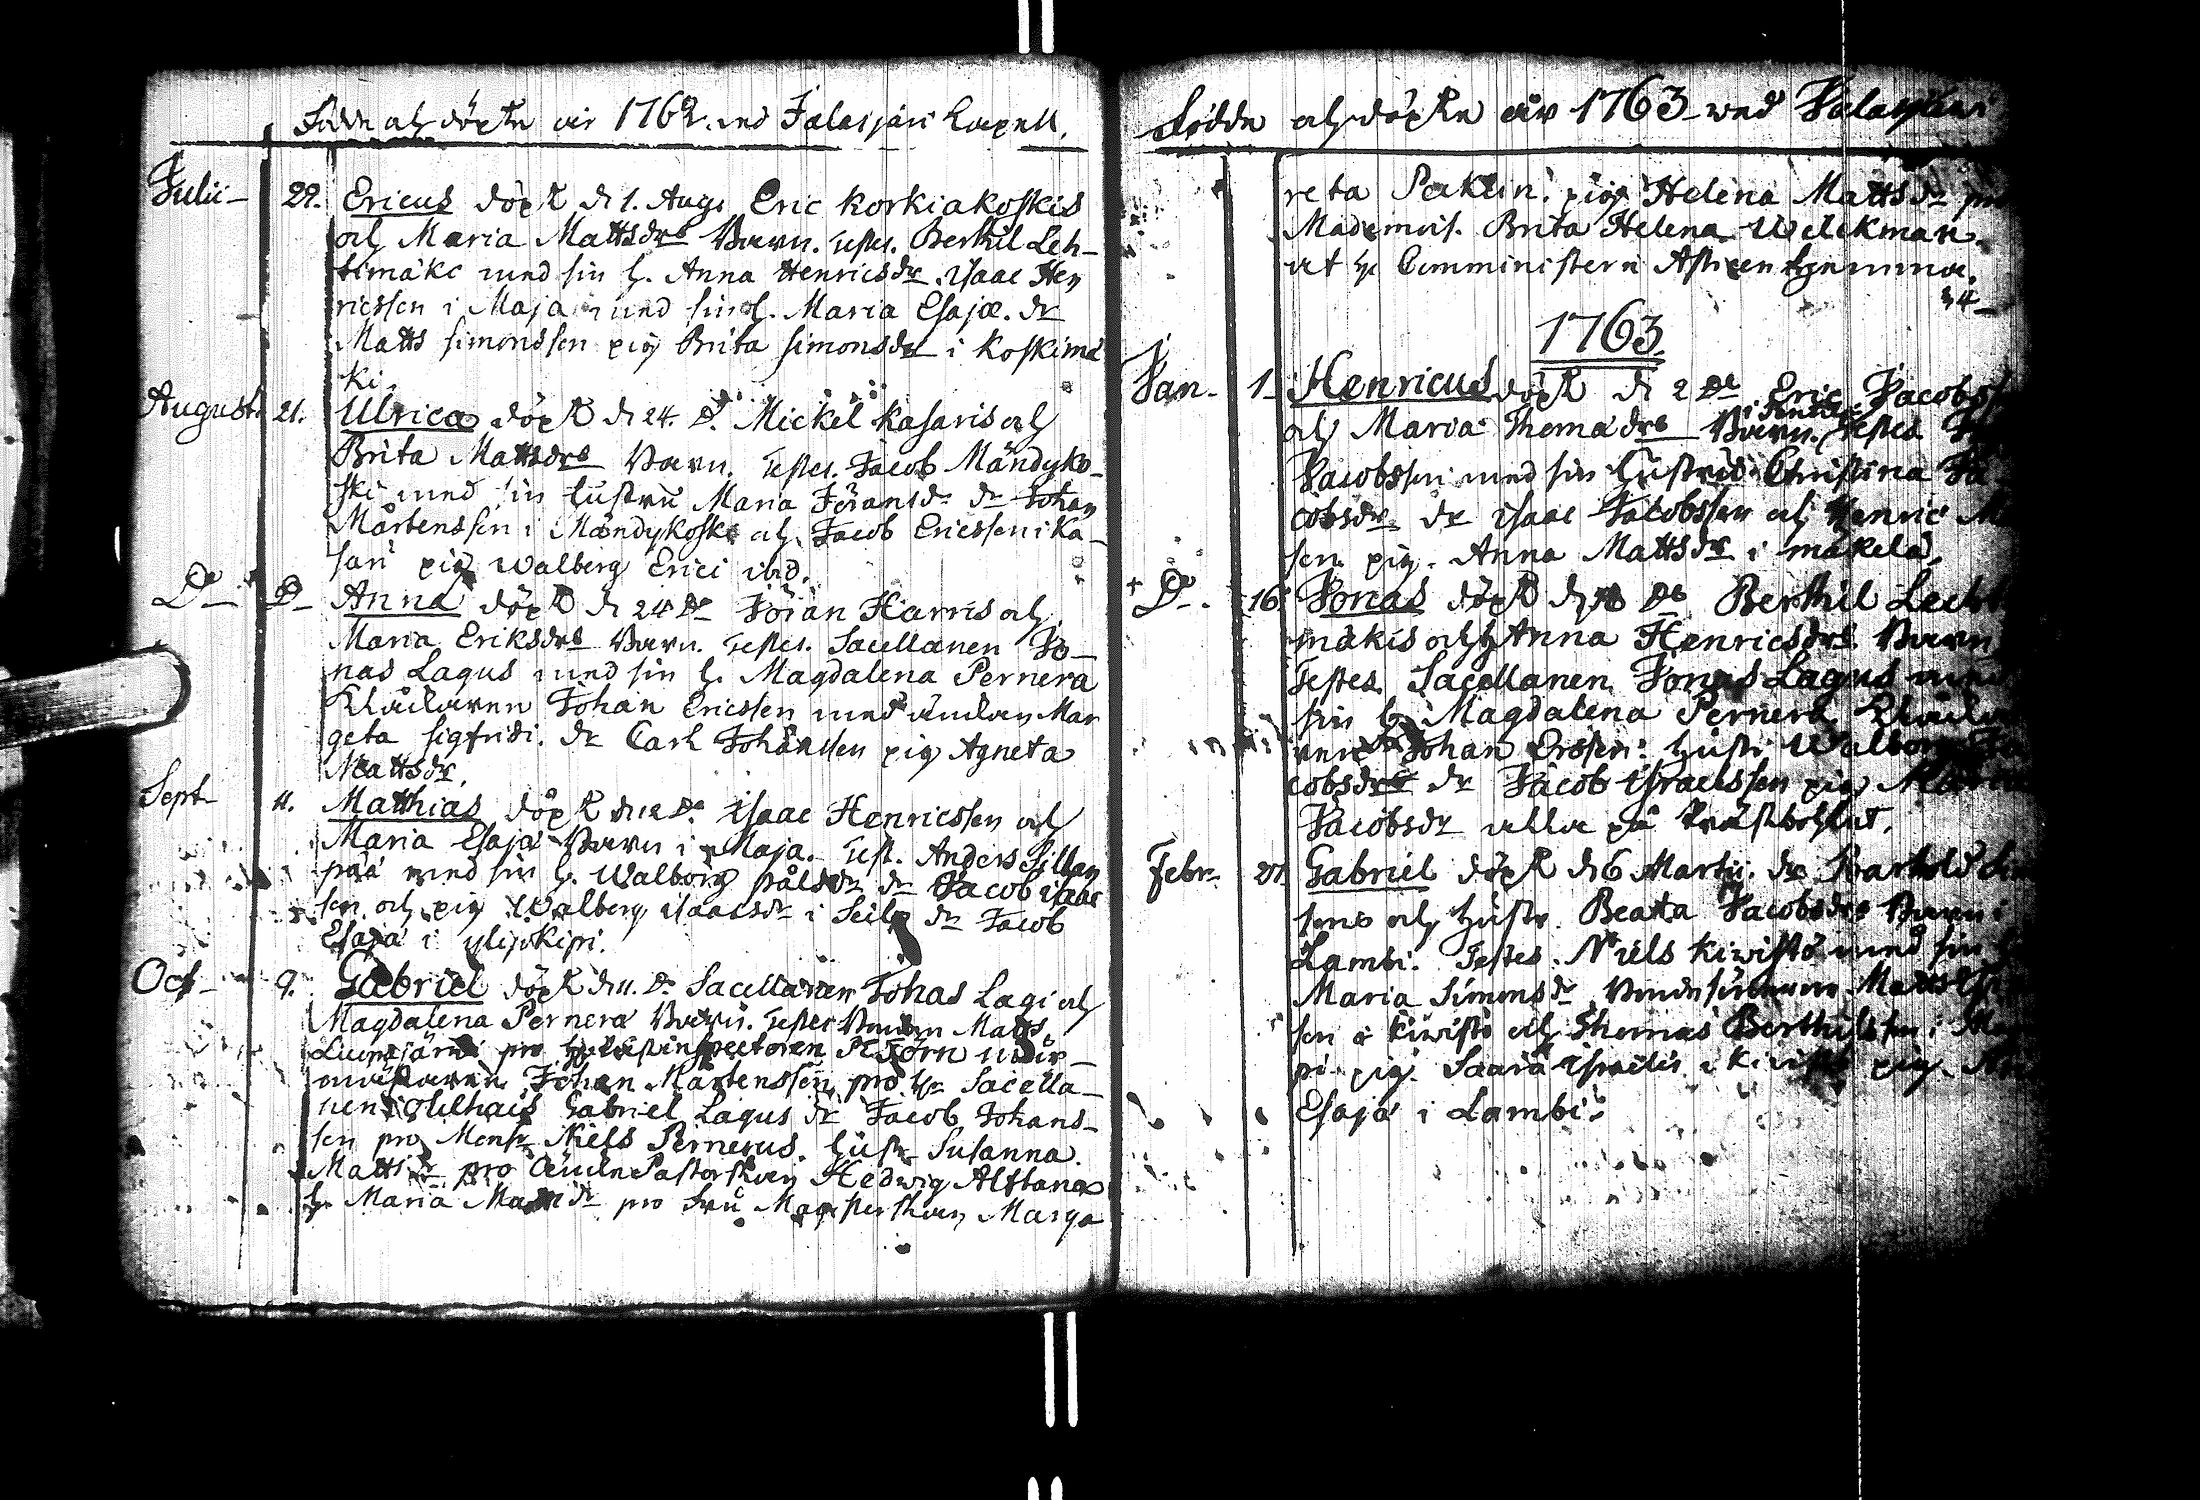 Födde och döpte åhr 1762 wed Jalasjärvi Capell.
Julii 29. Ericus döpt d. 1. Aug. Eric Korkiakoskis
och Maria Mattsdrs Barn. Testes. Berthil Leh-
timäki med sin h. Anna Henricsdr. Isaac Hen
ricssen i Maja med sin h. Maria Esajæ. dr
Matts Simonssen pig Brita Simonsdr i Koskimä
ki.
August. 21. Ulrica döpt d. 24. Do. Mickel Kasaris och
Brita Mattsdrs Barn. Testes. Jacob Mändyko-
ski med sin hustru Maria Jöransdr dr Johan
Mårtenssen i Mändykoski och Jacob Ericssen i Ka-
sari pig Walberg Erici ibid.
Do Do Anna döpt d. 24 Do Jöran Harris och
Maria Eriksdrs Barn. Testes. Sacellanen Jo-
nas Lagus med sin h. Magdalena Pernera
Klåckaren Johan Ericssen med änckan Mar
geta Sigfridi. dr Carl Johanssen pig Agneta
Mattsdr.
Sept. 11. Matthias döpt d. 12 Do. Isaac Henricssen och
Maria Esajæ Barn i Maja. Test. Anders Sillan
pää med sin h. Walborg Pålsdr dr Jacob Isaac
sen och pig Walberg Isaacsdr i Seila dr Jacob
Esajæ i Ylijokipi.
Oct. 9. Gabriel döpt d. 11. Do Sacellanen Johas Lagi och
Magdalena Pernera Barn. Testes Matts
Luopajärvi pro
Johan Mårtenssen pro Hr Sacella-
nen Gabriel Lagus dr Jacob Johans-
sen pro Monsr Niels Pernerus. hustr Susanna
Mattsdr pro Änckie Pastorskan Hedwig Alftana
h. Maria Mattsdr pro Fru Magisterskan Marga
Födde och döpte åhr 1763 wed Jalasjärvi
reta Peklin. pig Helena Mattsdr pro
Mademois. Brita Helena Welikman
at Hr Comministern
1763
Jan. 1. Henricus döpt d. 2 Do Eric Jacobs
och Maria Thomædrs Barn. Testes
Jacobssen med sin hustru Christina Ja
cobsdr dr Isaac Jacobssen och Henric
sen pig. Anna Mattsdr i Mäkelä.
Do. 16. Jonas döpt d. Do Berthil Lecht
mäkis och h Anna Henricsdrs Barn
Testes Sacellanen Jonas Lagus med
sin h. Magdalena Pernera Klåcka
ren Johan Erssen hustr Walborg Ja
cobsdr dr Jacob Israelssen pig
Jacobsdr alla på Prästbohlet.
Febr. 27. Gabriel döpt d. 6 Martii. dr Barthold
sens och hustr. Beata Jacobsdrs Barn i
Lambi. Testes. Niels Kiwistö med sin
Maria Simonsdr Matts
sen i Kiwistö och Thomas Berthilssen i
pi pig Saara Israelis i Kiwistö pig
Esajæ i Lambi.